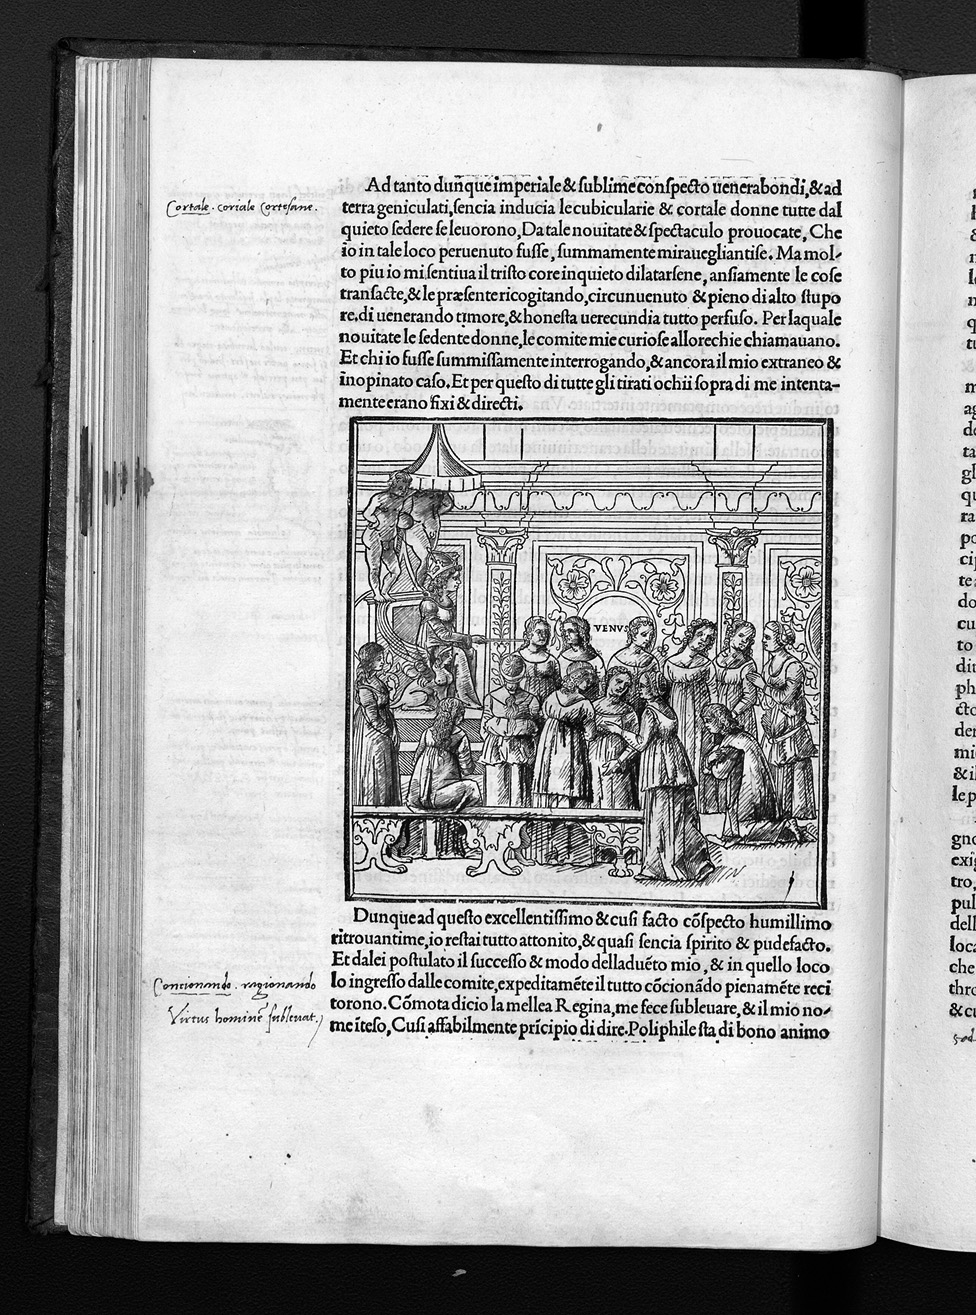 Ad tanto dunque imperiale & ſublime conſpecto uenerabondi, & ad
Cortale . coriale Cortesane .
terra geniculati, ſencia inducia le cubicularie & cortale donne tutte dal
quieto ſedere ſe leuorono, Da tale nouitate & ſpectaculo prouocate, Che
io in tale loco peruenuto fuſſe, ſummamente mirauegliantiſe. Ma mol-
to piu io mi ſentiua il triſto core inquieto dilatarſene, anſiamente le coſe
tranſacte, & le præſente ricogitando, circunuenuto & pieno di alto ſtupo
re, di uenerando timore, & honeſta uerecundia tutto perfuſo. Per laquale
nouitate le ſedente donne, le comite mie curioſe allorechie chiamauano.
Et chi io fuſſe ſummiſſamente interrogando, & ancora il mio extraneo &
inopinato caſo. Et per queſto di tutte gli tirati ochii ſopra di me intenta-
mente erano fixi & directi.
VENVS
Dunque ad queſto excellentiſſimo & cuſi facto cõſpecto humillimo
ritrouantime, io reſtai tutto attonito, & quaſi ſencia ſpirito & pudefacto.
Et da lei poſtulato il ſucceſſo & modo delladuẽto mio, & in quello loco
Concionando . ragionando
lo ingreſſo dalle comite, expeditamẽte il tutto cõcionãdo pienamẽte reci
torono. Cõmota dicio la mellea Regina, me fece ſubleuare, & il mio no-
Virtus hominẽ ſubleuat.
me īteſo, Cuſi affabilmente prīcipio di dire. Poliphile ſta di bono animo